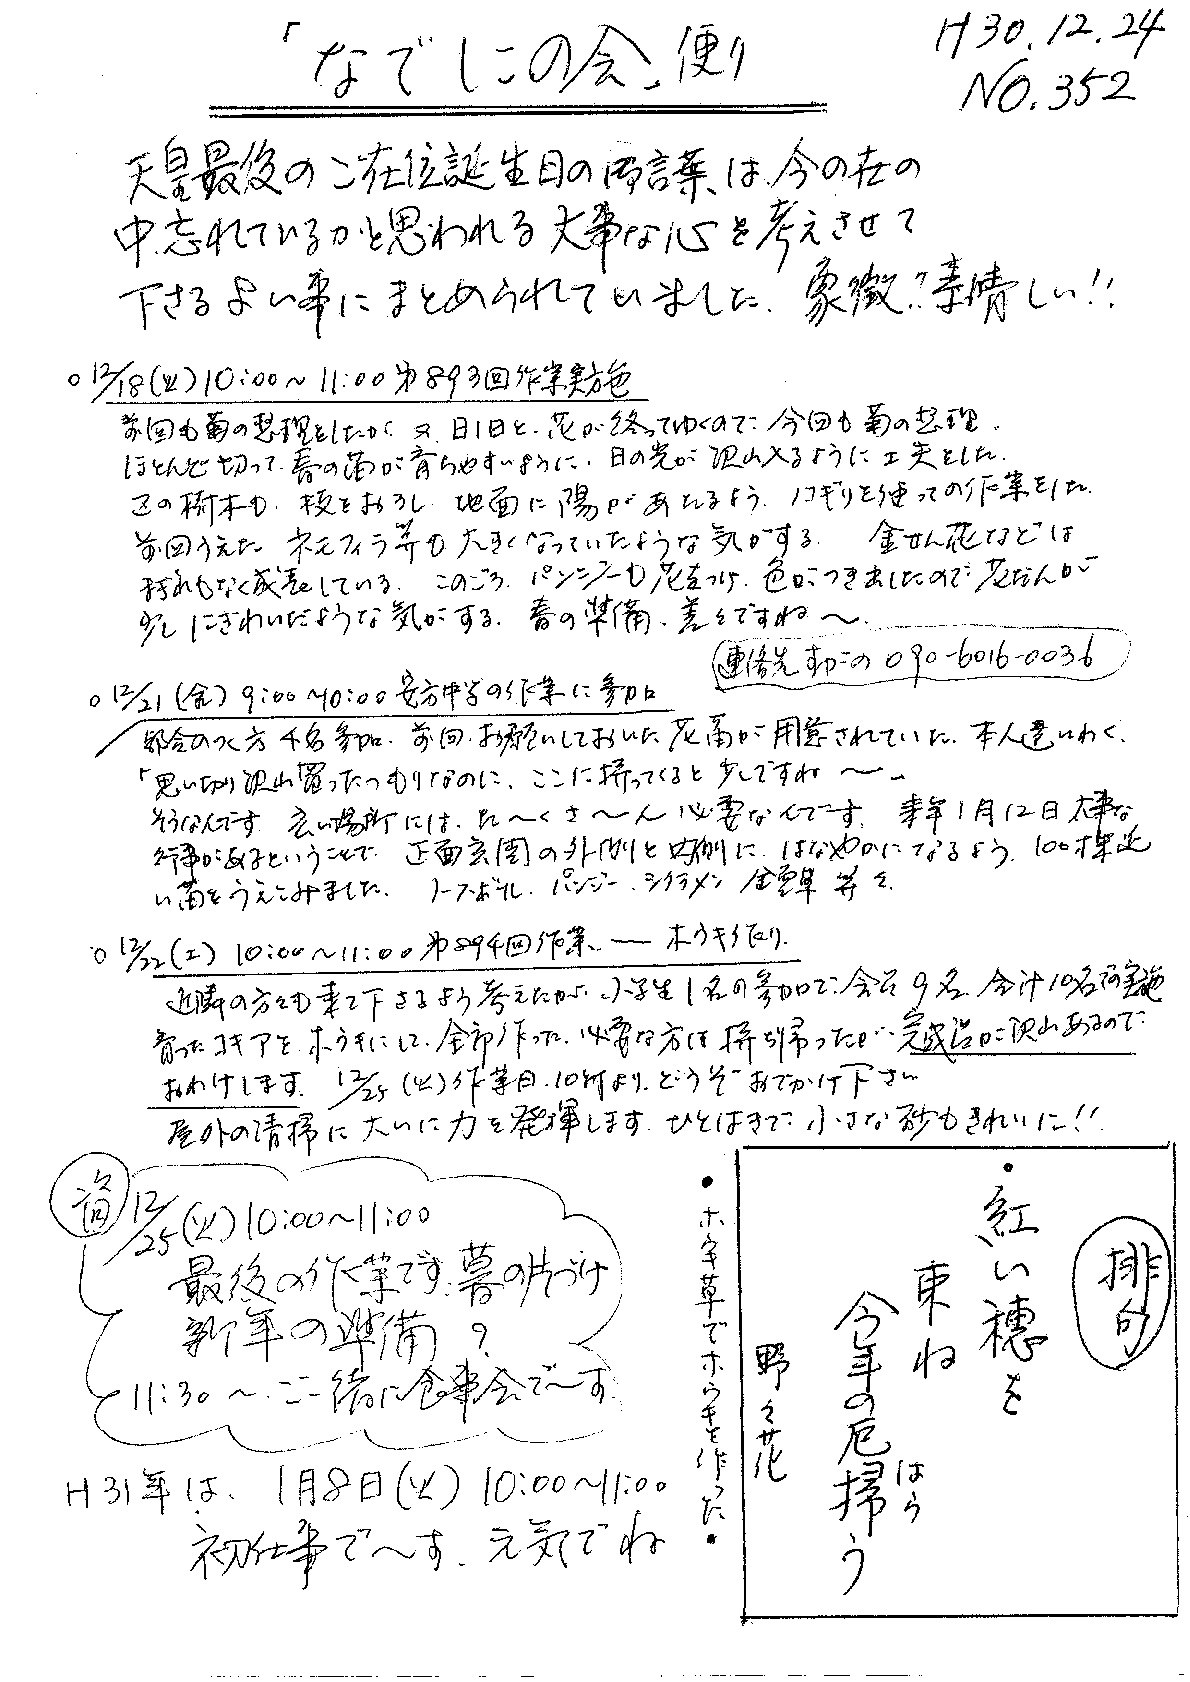 「なでしこの会」便り
H30.12.24
NO.352
天皇最後のご在位誕生日のお言葉は、今の在の
中、忘れているかと思われる大事な心を考えさせて
下さるよい事にまとめられていました。象徴!!素晴しい!!
○12/18(火)10:00〜11:00 第893回作業実施
前回も菊の整理をしたが、又、日1日と、花が終ってゆくので、今回も菊の整理。
ほとんど切って、春の苗が育ちやすいように、日の光が沢山入るように工夫をした。
の樹木も、枝をおろし、地面に陽があたるよう、ノコギリを使っての作業をした。
前回うえた ネモフィラ等も大きくなっていたような気がする。 金せん花などは
枯れもなく成長している。 このごろ、パンジーも花をつけ、色がつきましたので花だんが
少しにぎわいだような気がする。春の準備、着々ですね〜。
連絡先 すがの 090-6016-0036
○12/21(金)9:00〜10:00 安方中学の作業に参加
都合のつく方4名参加。前回、お願いしておいた花苗が用意されていた。本人達いわく、
「思い切り沢山買ったつもりなのに、ここに持ってくると少しですね〜」
そうなんです。広い場所には、た〜くさ〜ん必要なんです。来年1月12日大事な
行事があるということで、正面玄関の外側と内側に、はなやかになるよう、100株近
い苗をうえこみました。 ノースポール、パンジー、シクラメン 金魚草 等々
○12/22(土)10:00〜11:00 第894回作業、― ホウキ作り
近隣の方々も来て下さるよう考えたが、小学生1名の参加で、会員9名、合計10名で実施
育ったコキアを、ホウキにして、全部作った。必要な方は持ち帰ったが、完成品が沢山あるので
おわけします。 12/25(火)作業日、10時より、どうぞおでかけ下さい
屋外の清掃に大いに力を発揮します。ひとはきで、小さな砂もきれいに!!
12/25(火)10:00〜11:00
最後の作業です。暮の片づけ
新年の準備?
11:30〜 ご一緒に食事会で〜す
H31年は、1月8日(火)10:00〜11:00
初仕事で〜す。元気でね
排句
・紅い穂を
束ね
今年の厄掃う
はらう
野々花
・ホウキ草でホウキを作った・